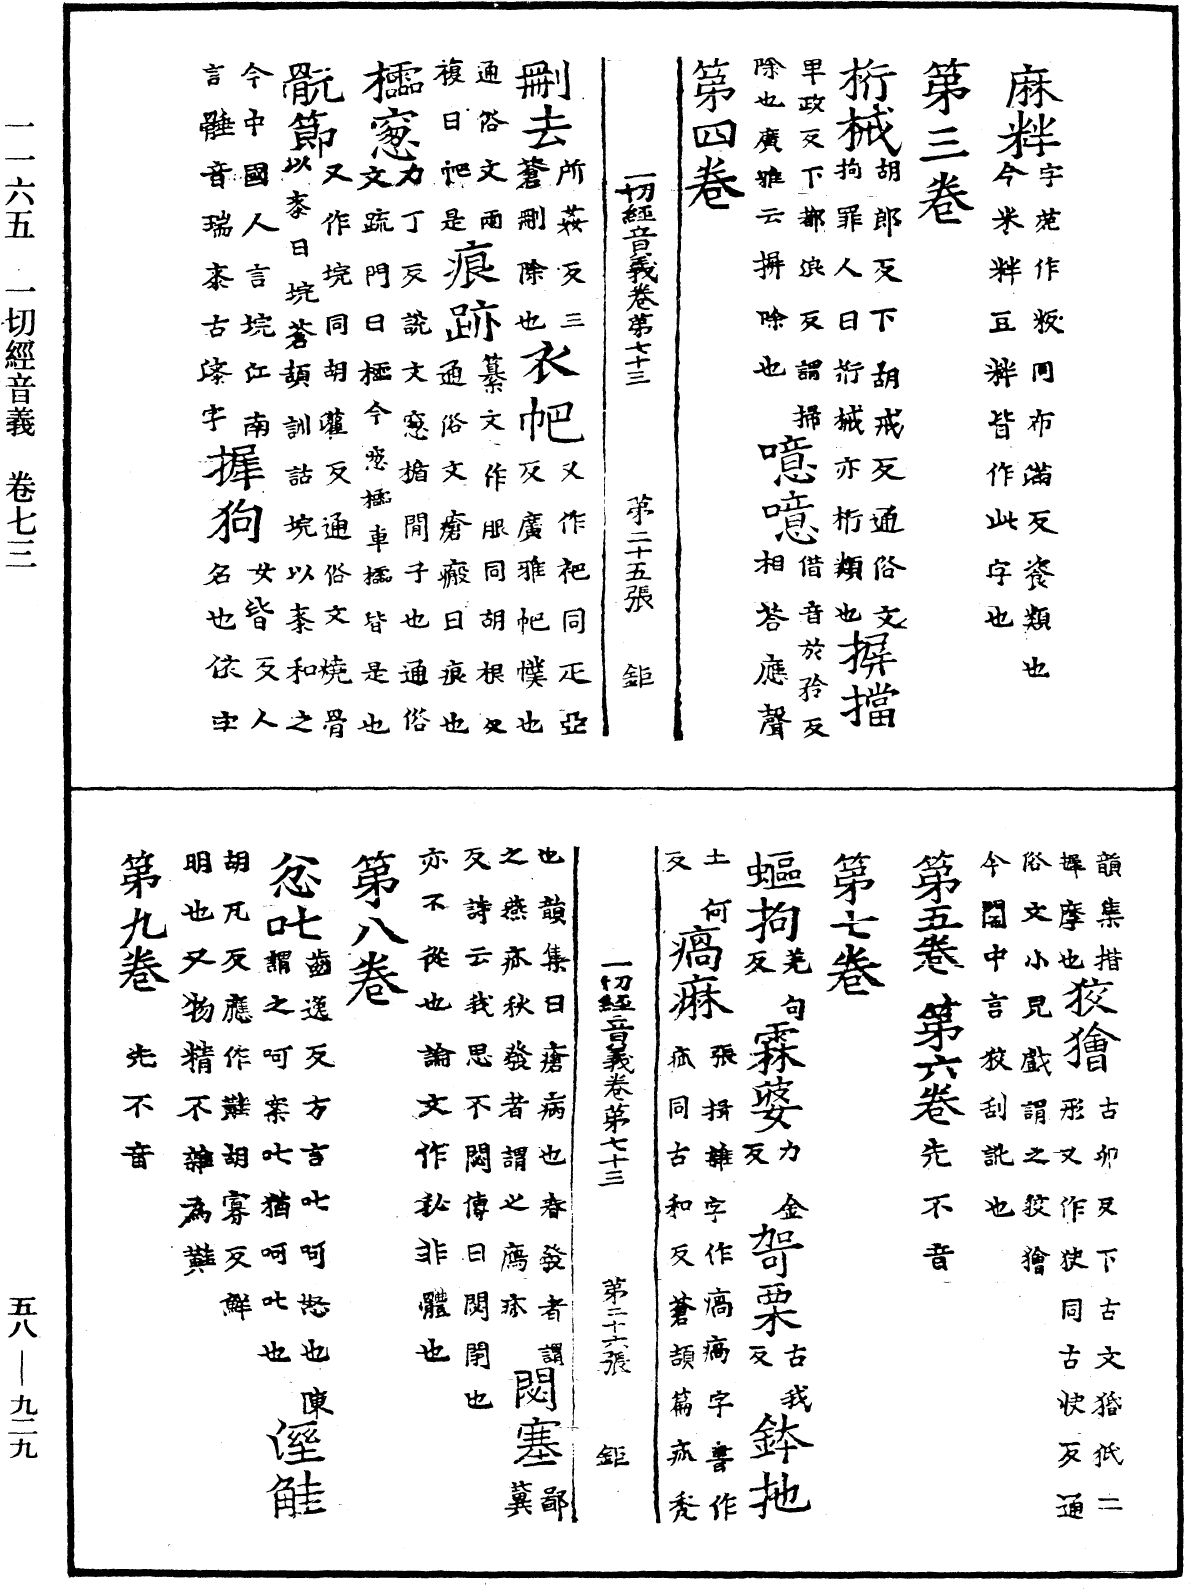 麻𥹴字苑作粄同布滿反餈類也
今米𥹴豆𥹴皆作此字也
第三卷
桁械胡郎反下胡戒反通俗文
拘罪人曰桁械亦桁類也摒擋
畢政反下都浪反謂掃
除也廣雅云摒除也噫噫借音於矜反
相荅應聲
第四卷
一切經音義卷第七十三 第二十五張 鉅
刪去所姦反三
蒼刪除也衣帊又作袙同疋亞
反廣雅帊幞也
通俗文兩
複曰帊是痕跡纂文作𦙫同胡根反
通俗文瘡瘢曰痕也
櫺窻力丁反説文窻楯閒子也通俗
文疏門曰櫺今窻櫺車櫺皆是也
骫節又作垸同胡灌反通俗文燒骨
以桼曰垸蒼頡訓詁垸以桼和之
今中國人言垸江南
言䐑音瑞桼古漆字摨狗女皆反人
名也依字
韻集揩
摨摩也狡獪古卯反下古文狯狘二
形又作狭同古快反通
俗文小兒戲謂之狡獪
今關中言狡刮訛也
第五卷 第六卷先不音
第七卷
蝹拘羌句
反霖婆力金
反哿栗古我
反鉢扡
土何
反瘑痳張揖雜字作㾏瘑字書作
疨同古和反蒼頡篇疨禿
也韻集曰瘡病也春發者謂
之燕疨秋發者謂之鴈疨閟塞鄙冀
反詩云我思不閟傳曰閟閉也
亦不從也論文作祕非體也
一切經音義卷第七十三 第二十六張 鉅
第八卷
忿叱齒逸反方言叱呵怒也陳
謂之呵案叱猶呵叱也𨓍鮭
胡瓦反應作䵷胡寡反鮮
明也又物精不雜為䵷
第九卷 先不音
一一六五 一切經音義 卷七三
五八—九二九